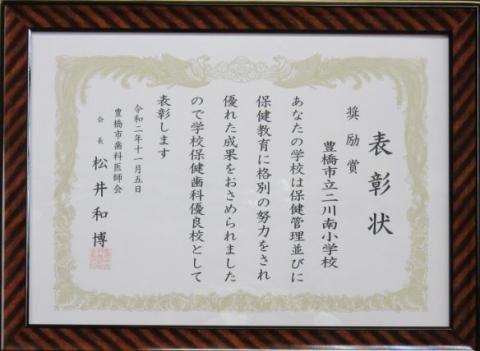 表彰状
奨励賞
豊橋市立二川南小学校
あなたの学校は保健管理並びに
保健教育に格別の努力をされ
優れた成果をおさめられました
ので学校保健歯科優良校として
表彰します
令和二年十一月五日
豊橋市歯科医師会
会長 松井和博